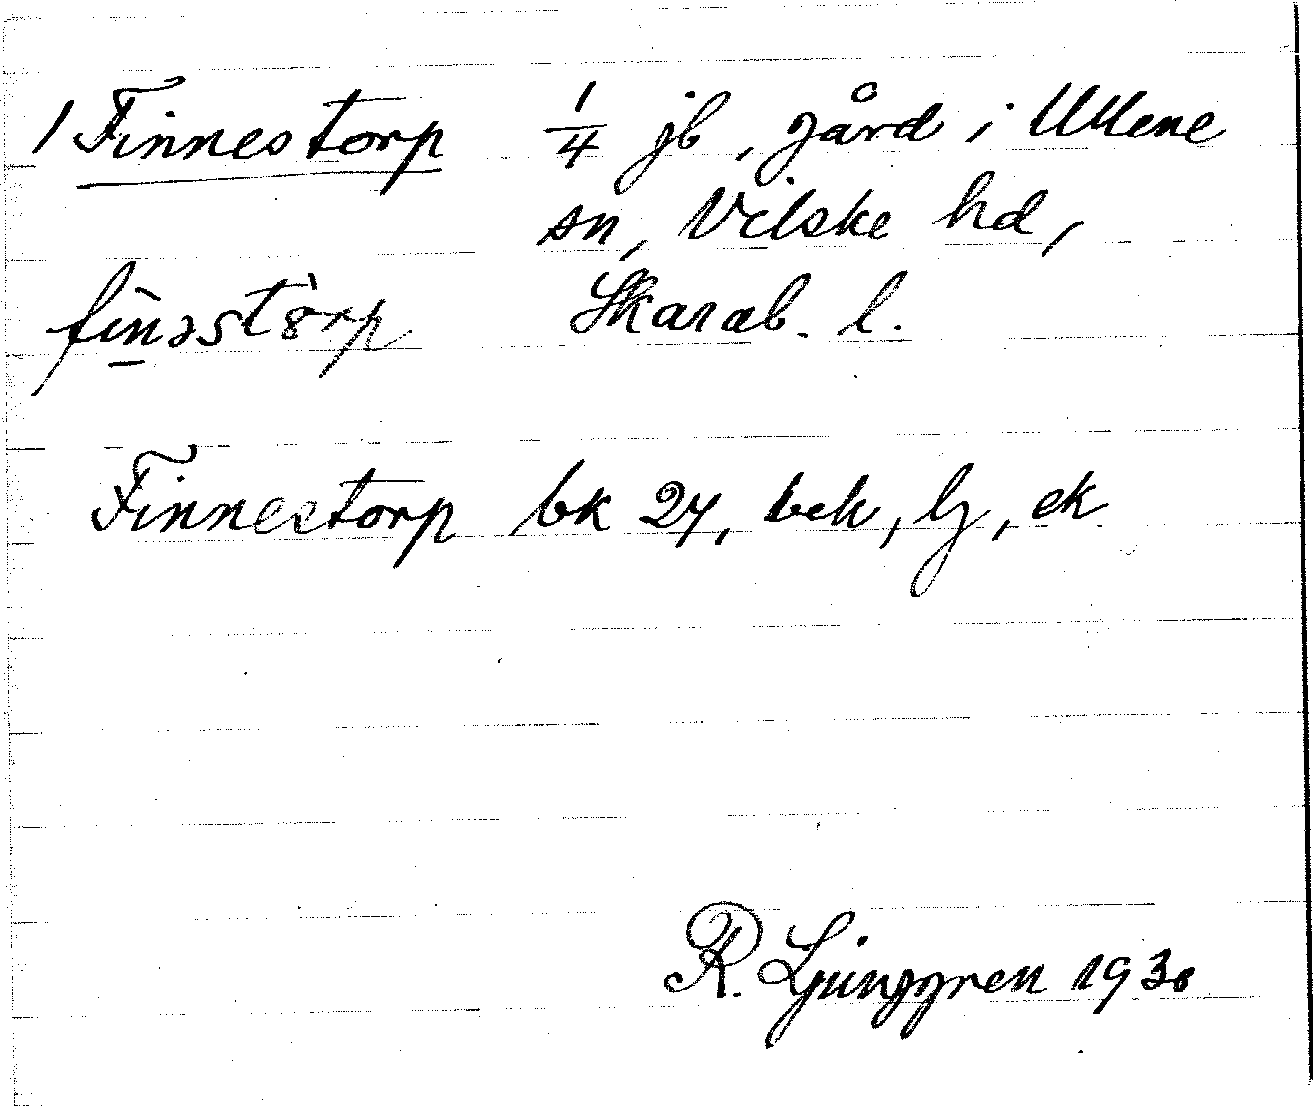 1 Finnestorp 1/4 jb, gård i Ullene
sn, Vilske hd,
fìn̲əstȯrp Skarab. l.
Finnestorp bk 24, beh, lj, ek
R. Ljunggren 1930